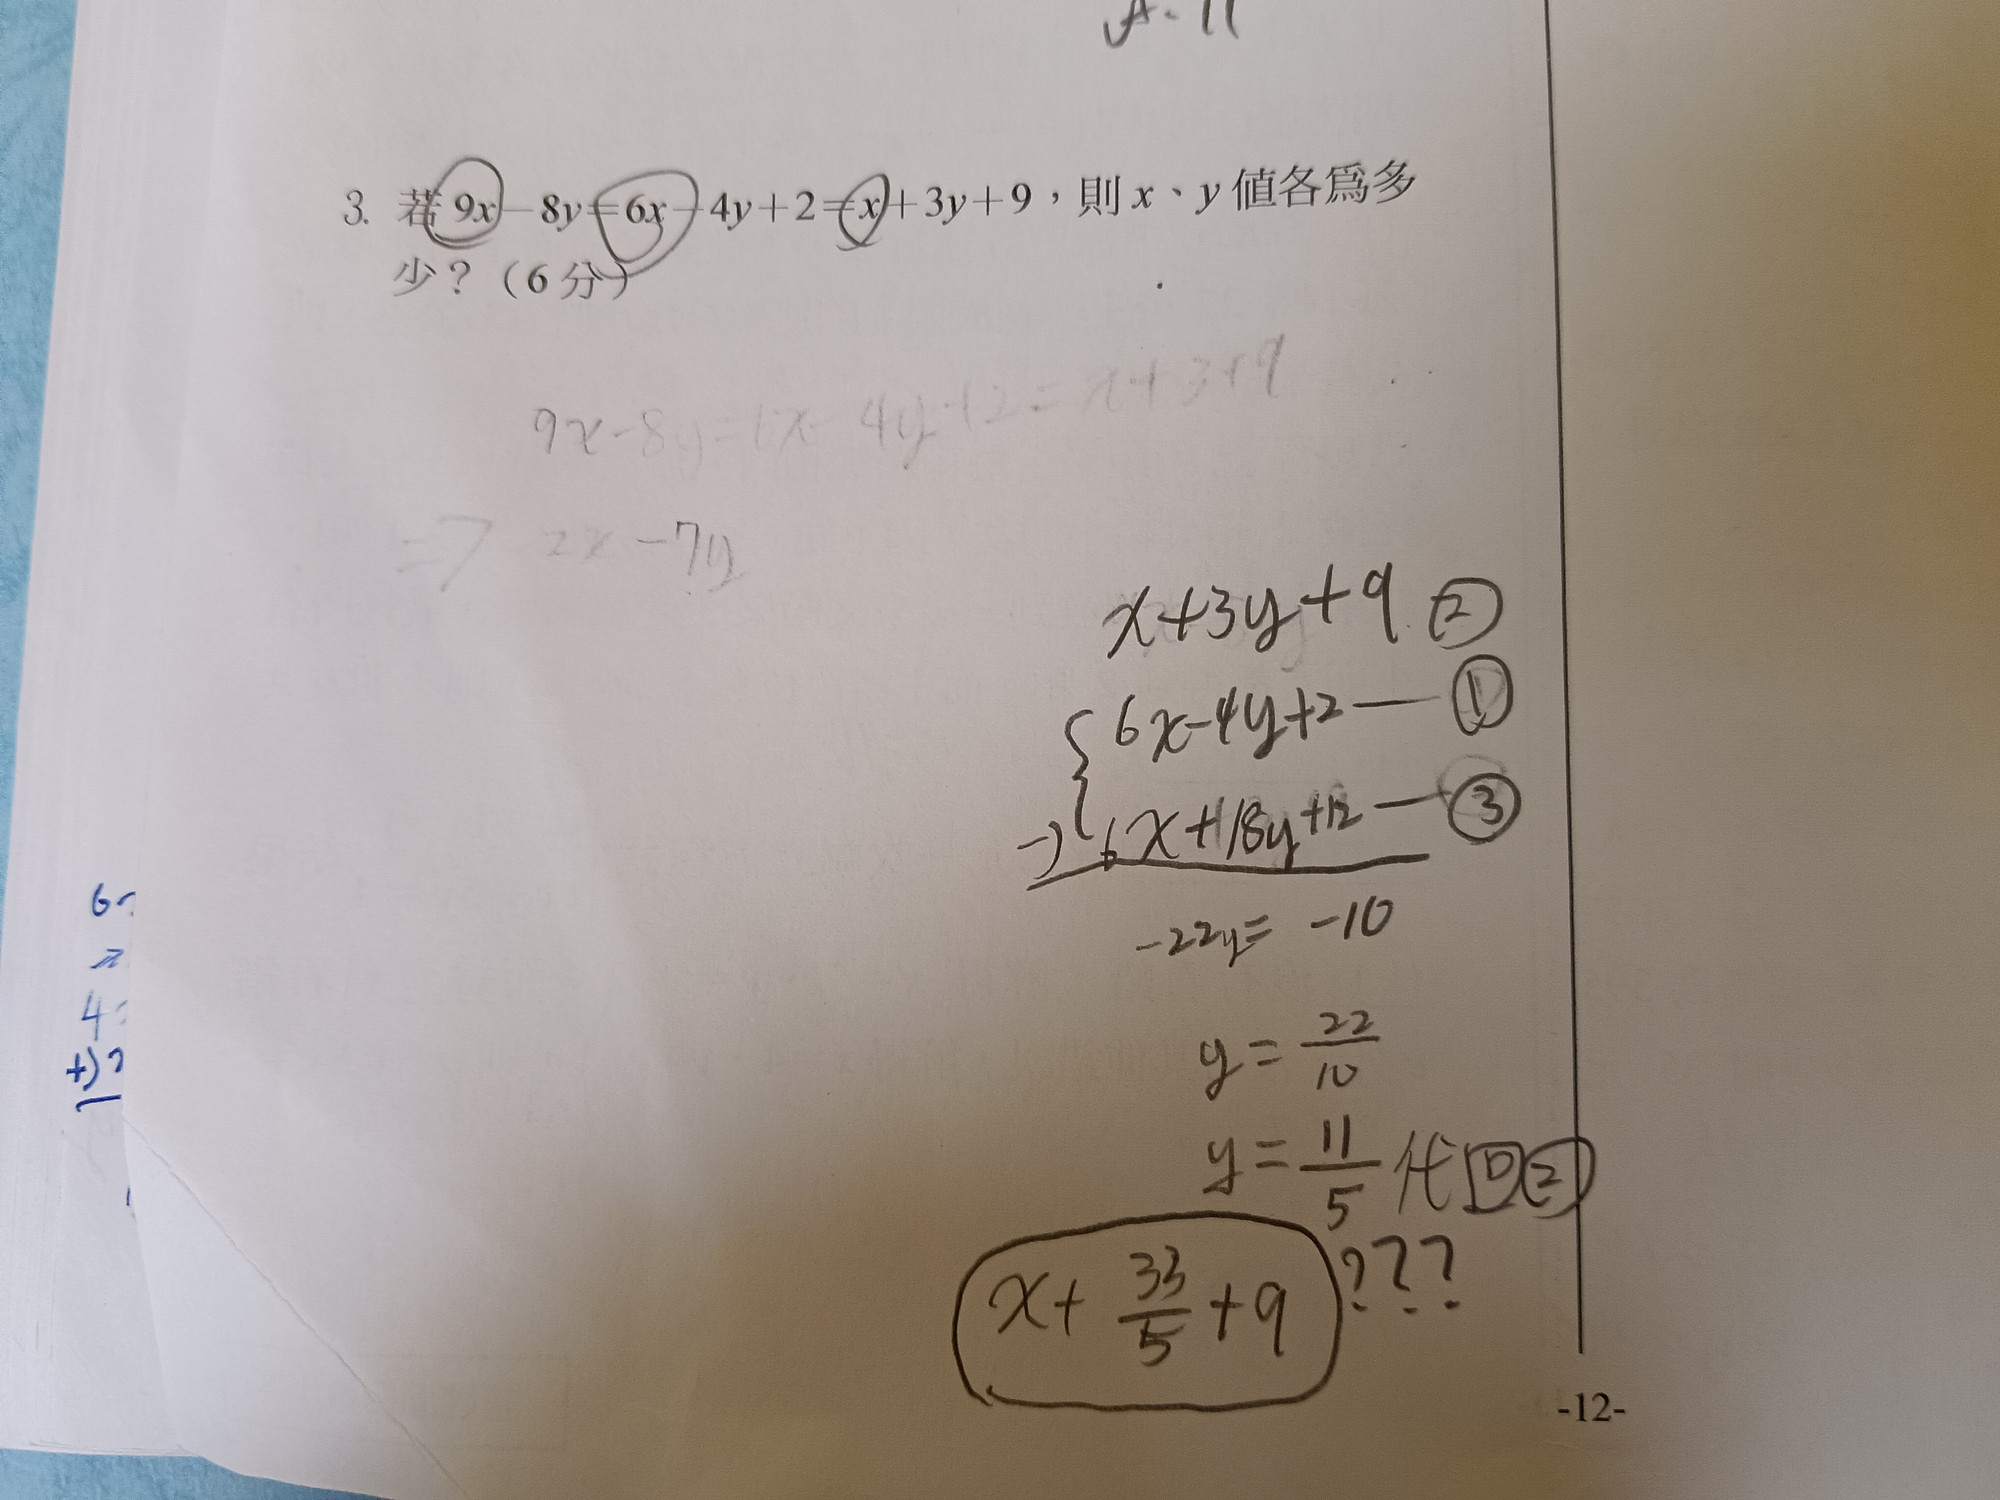 A. 11
3. 若 9x－8y＝6x－4y＋2＝x＋3y＋9，則 x、y 值各為多
少？（6 分）
9x-8y=6x-4y+2=x+3+9
=> 2x-7y
x+3y+9 ②
6x-4y+2 — ①
-) 6x+18y+12 — ③
-22y= -10
y = 22/10
y = 11/5 代回②
x+ 33/5 +9 ???
-12-